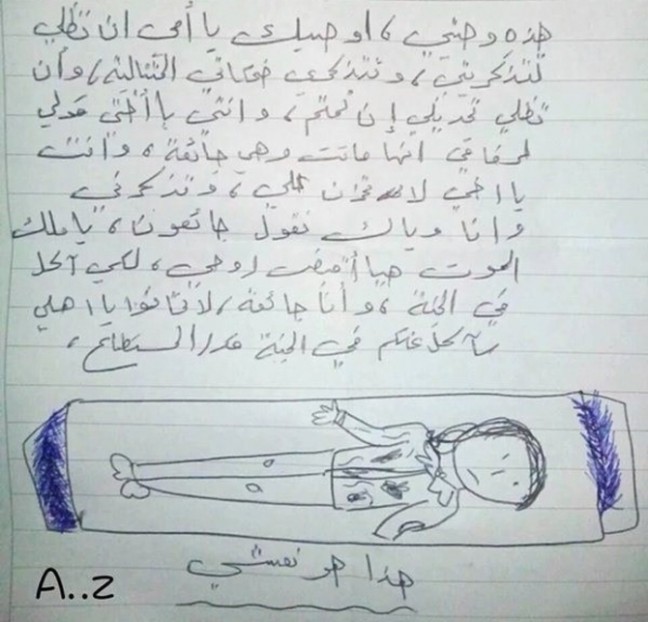 هذه وصيتي، اوصيك يا أمي ان تظلي
تتذكريني، وتتذكري ضحكاتي المتتالية، وأن
تظلي تحديلي إن نمتم، وانتي يا أختي قولي
لرفاقي انها ماتت وهي جائعة، وانت
يا اخي لا تحزن علي، وتذكرني
وانا وياك نقول جائعون، يا ملك
الموت هيا أقبض روحي، لكي آكل
في الجنة، وأنا جائعة، لا تخافوا يا اهلي
سآكل عنكم في الجنة قدر المستطاع،
هذا هو نعشي
A..z